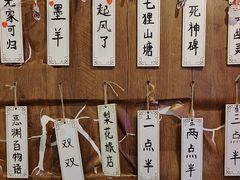 无家可归
墨羊
起风了
七狸山塘
死神碑
恶渊百物语
双双
梨花旅店
一点半
两点半